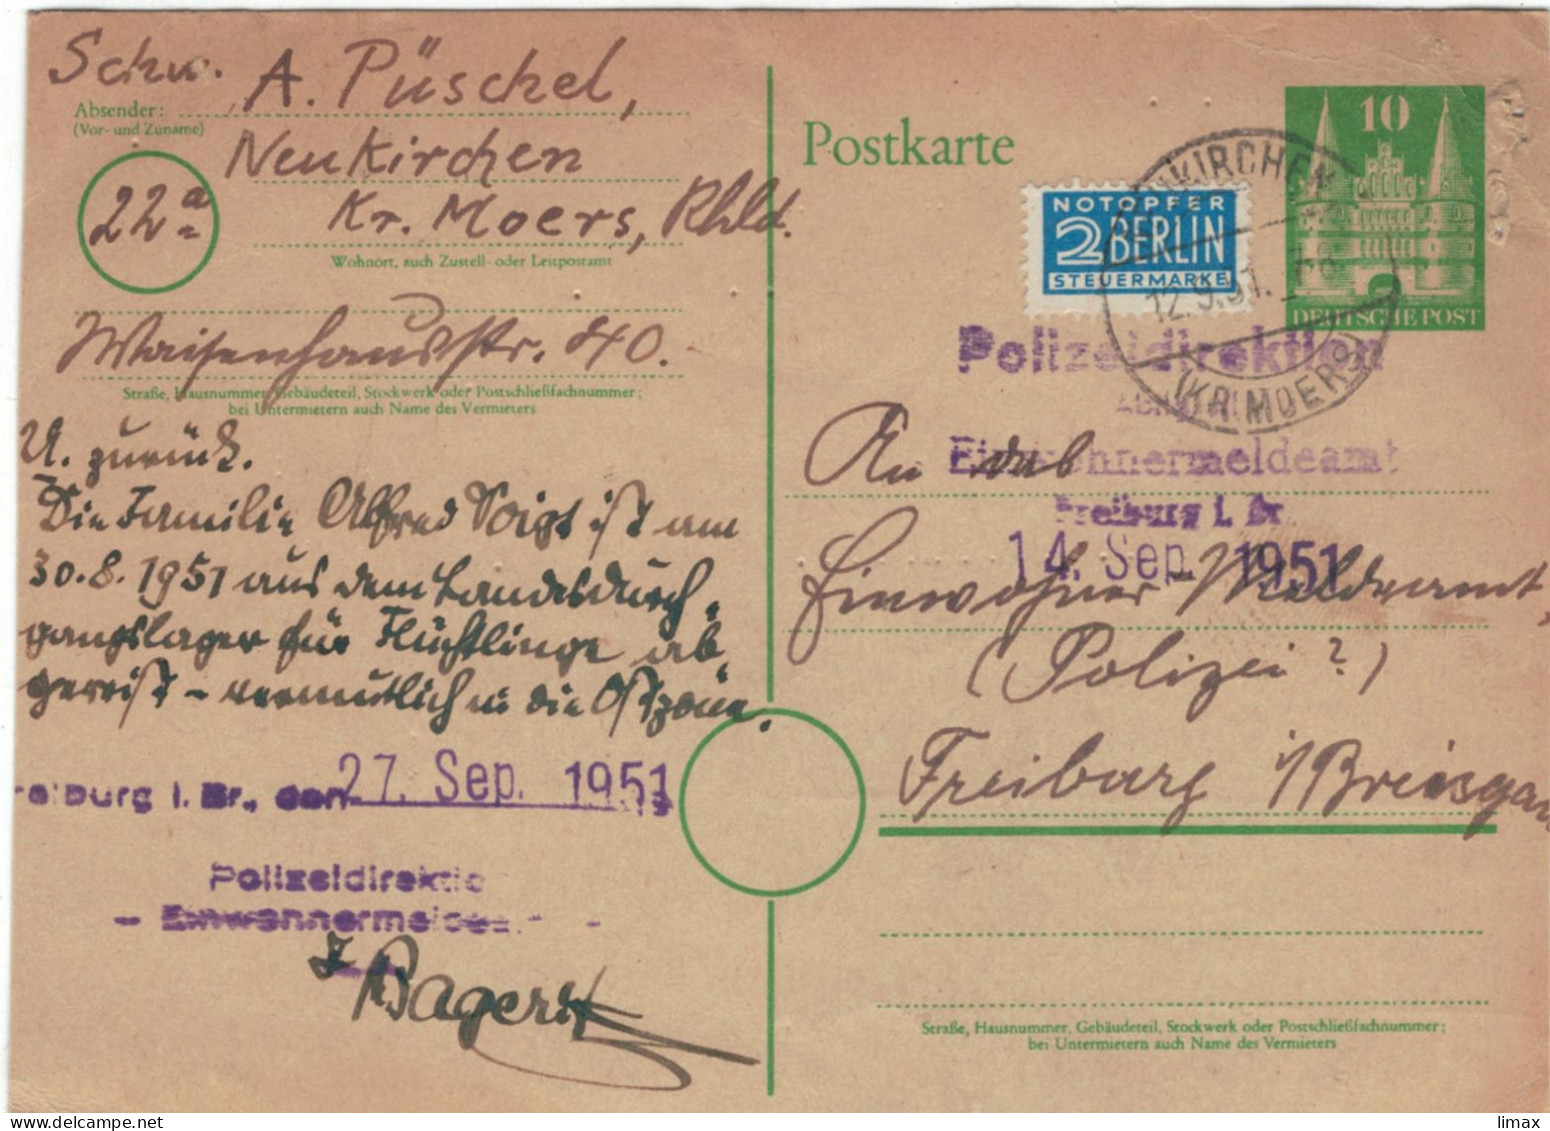 Schw. A. Püschel,
Absender:
(Vor- und Zuname)
Neukirchen
22a
Kr. Moers, Rhld.
Wohnort, auch Zustell- oder Leitpostamt
Waisenhausstr. 40.
Straße, Hausnummer, Gebäudeteil, Stockwerk oder Postschließfachnummer;
bei Untermietern auch Name des Vermieters
U. zurück.
Die Familie Alfred Voigt ist am
30.8.1951 aus dem Landesdurch-
gangslager für Flüchtlinge ab-
gereist – vermutlich in die Ostzone.
reiburg i. Br., den 27. Sep. 1951
Polizeidirektio
- Einwohnermeldea -
Bagert
Postkarte
NOTOPFER
2 BERLIN
STEUERMARKE
KIRCHEN
12.9.51.
(KR. MOERS)
10
DEUTSCHE POST
Polizeidirektion
Einwohnermeldeamt
Freiburg i. Br
14. Sep. 1951
An das
Einwohner Meldeamt,
(Polizei?)
Freiburg i/Breisgau
Straße, Hausnummer, Gebäudeteil, Stockwerk oder Postschließfachnummer;
bei Untermietern auch Name des Vermieters
limax